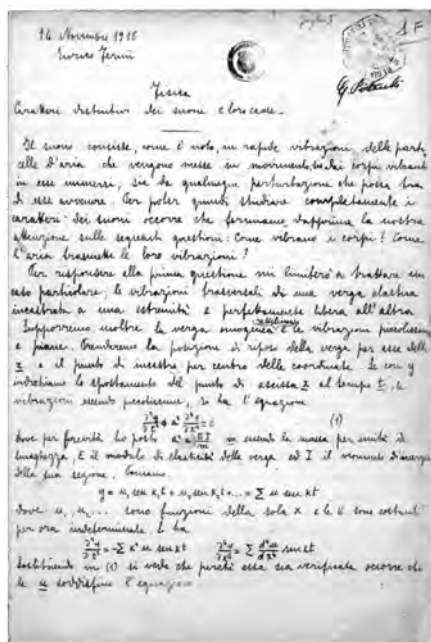 14 Novembre 1918
Enrico Fermi
1 F
Fisica
Caratteri distintivi dei suoni e loro cause.
Il suono consiste, come è noto, in rapide vibrazioni delle parti
celle d'aria che vengono messe in movimento, sia dai corpi vibranti
in esse immersi, sia da qualunque perturbazione che possa tra
di esse avvenire. Per poter quindi studiare completamente i
caratteri dei suoni occorre che fermiamo dapprima la nostra
attenzione sulle seguenti questioni: Come vibrano i corpi? Come
l'aria trasmette le loro vibrazioni?
Per rispondere alla prima questione mi limiterò a trattare un
caso particolare; le vibrazioni trasversali di una verga elastica
incastrata a una estremità e perfettamente libera all'altra
Supporremo inoltre la verga omogenea rettilinea e le vibrazioni piccolissime
e piane. Prenderemo la posizione di riposo della verga per asse delle
x e il punto di incastro per centro delle coordinate. Se con y
indichiamo lo spostamento del punto di ascissa x al tempo t, le
vibrazioni essendo piccolissime, si ha l'equazione
(1)
dove per brevità ho posto a² = EI/m m essendo la massa per unità di
lunghezza, E il modulo di elasticità della verga ed I il momento d'inerzia
della sua sezione. Poniamo
y = u₁ sen k₁t + u₂ sen k₂t + ... = Σ u sen kt
dove u₁, u₂ ... sono funzioni della sola x e le k sono costanti
per ora indeterminate. Si ha
∂²y/∂t² = -Σ k² u sen kt ∂⁴y/∂x⁴ = Σ d⁴u/dx⁴ sen kt
Sostituendo in (1) si vede che perchè essa sia verificata occorre che
le u soddisfino l'equazione